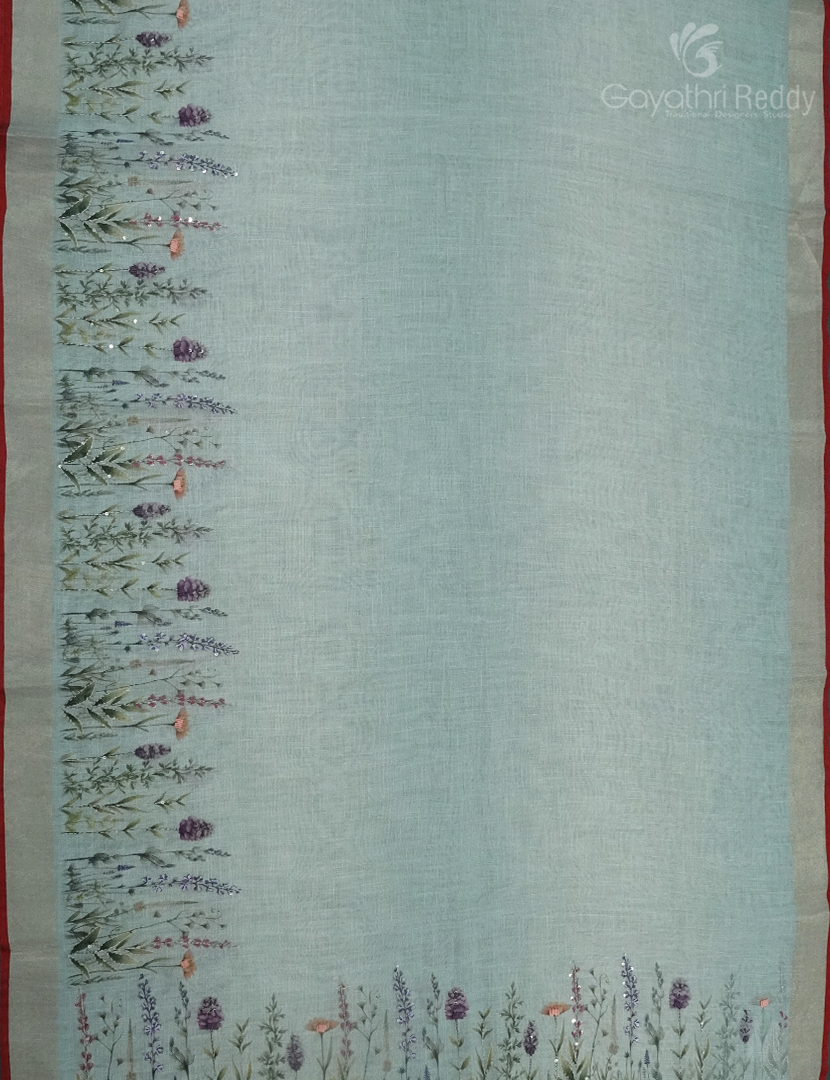 Gayathri Reddy
Traditional Designer Studio